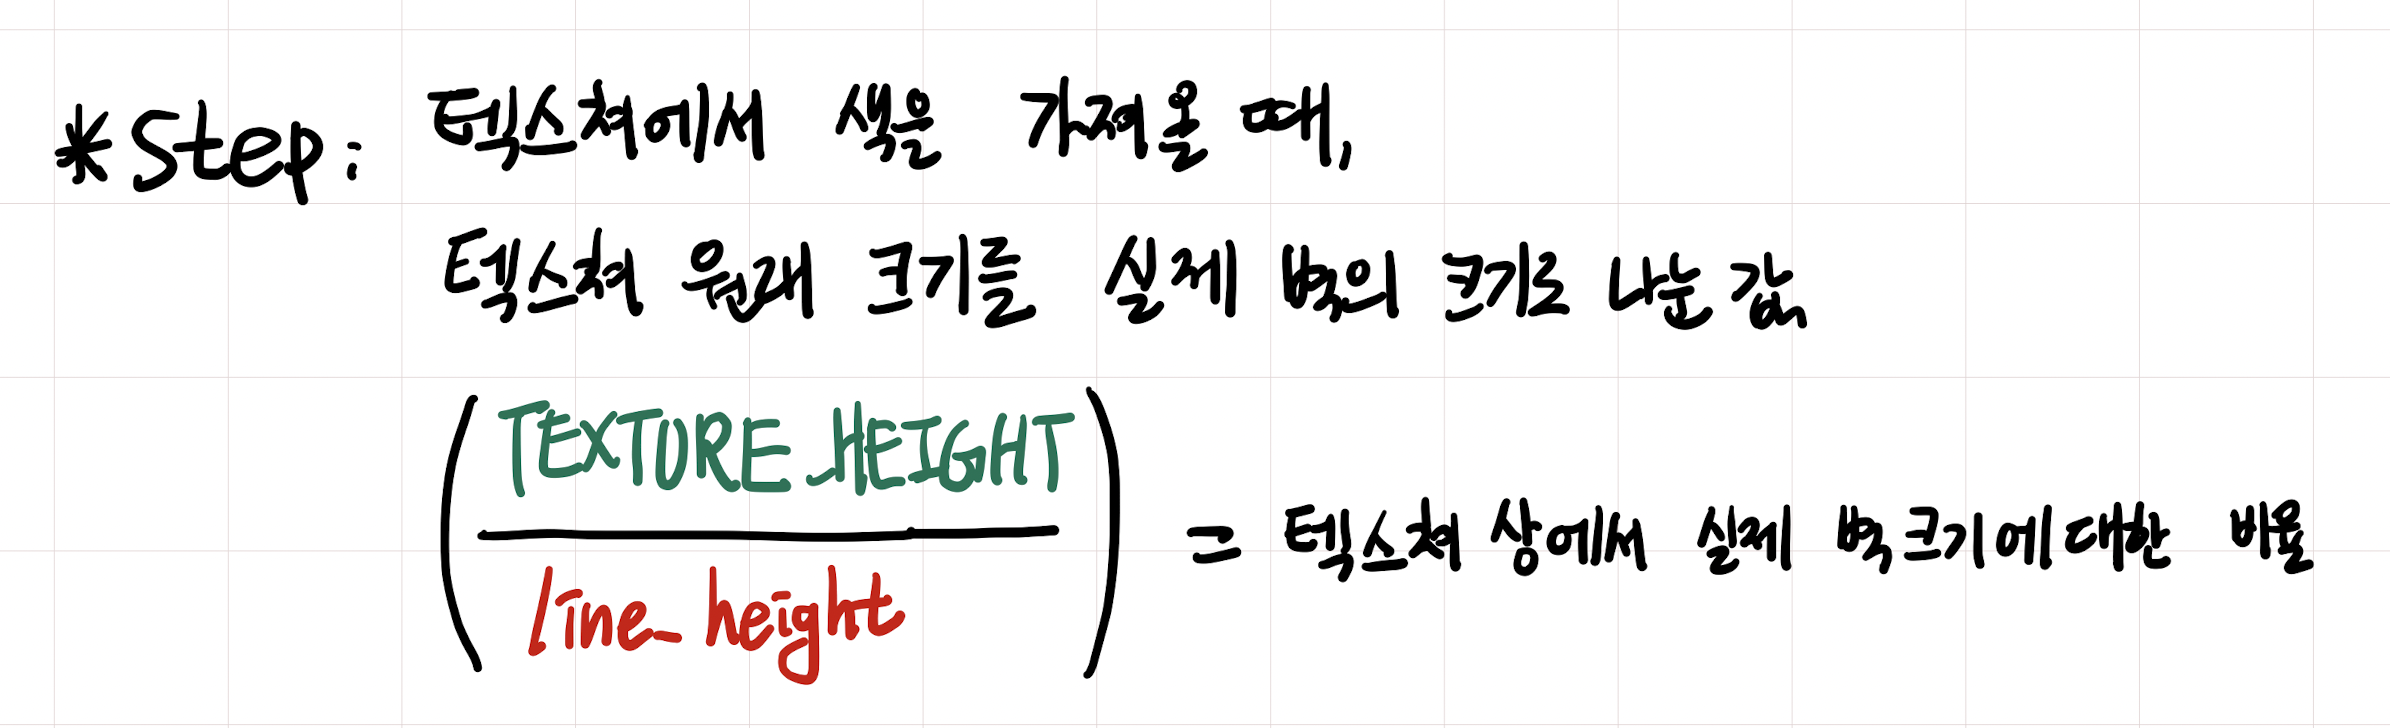 *Step: 텍스쳐에서 색을 가져올 때,
텍스쳐 원래 크기를 실제 벽의 크기로 나눈 값
(TEXTURE_HEIGHT
line_height) = 텍스쳐 상에서 실제 벽 크기에 대한 비율